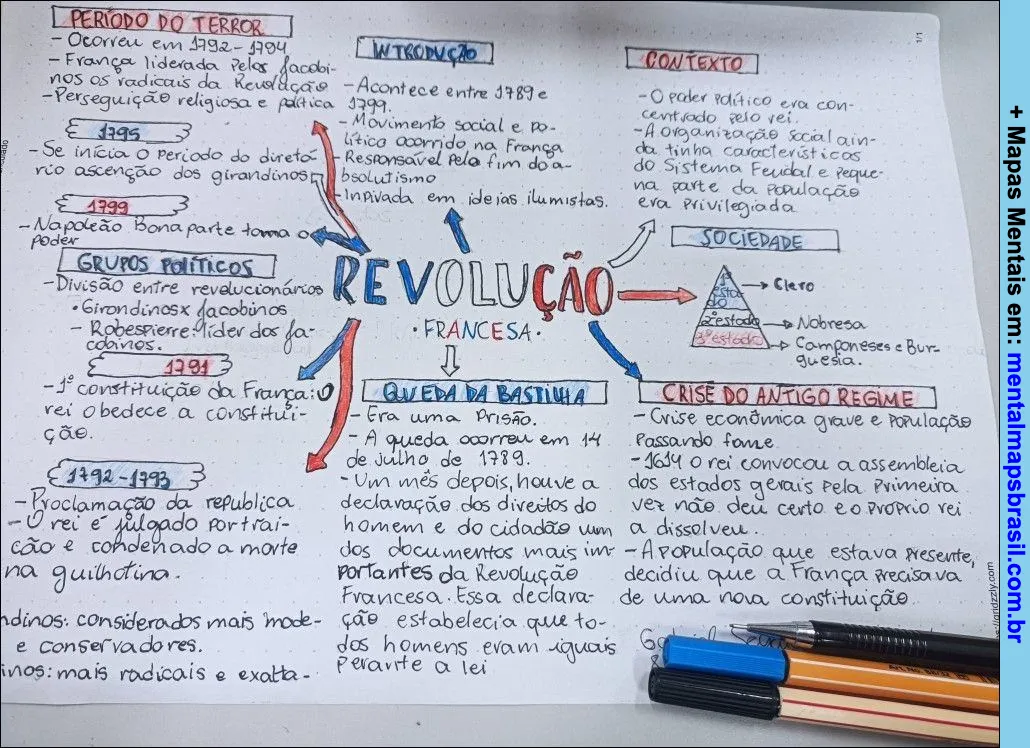 PERÍODO DO TERROR
- Ocorreu em 1792-1794
- França liderada pelos Jacobi-
nos os radicais da Revolução
- Perseguição religiosa e política
1795
- Se inicia o período do diretó-
rio ascenção dos girandinos
1799
- Napoleão Bonaparte toma o
poder
GRUPOS POLÍTICOS
- Divisão entre revolucionários
• Girondinos x Jacobinos
- Robespierre: líder dos ja-
cobinos.
1791
- 1º constituição da França: O
rei obedece a constitui-
ção.
1792-1793
- Proclamação da republica
- O rei é julgado por trai-
cão e condenado a morte
na guilhotina.
ndinos: considerados mais mode-
e conservadores.
inos: mais radicais e exalta-
INTRODUÇÃO
- Acontece entre 1789 e
1799.
- Movimento social e po-
lítico ocorrido na França
- Responsável pelo fim do a-
bsolutismo
- Inpivada em ideias ilumistas.
REVOLUÇÃO
• FRANCESA •
QUEDA DA BASTILHA
- Era uma Prisão.
- A queda ocorreu em 14
de julho de 1789.
- Um mês depois, houve a
declaração dos direitos do
homem e do cidadão um
dos documentos mais im-
portantes da Revolução
Francesa. Essa declara-
ção estabelecia que to-
dos homens eram iguais
perante a lei
CONTEXTO
- O poder político era con-
centrado pelo rei.
- A organização social ain-
da tinha características
do Sistema Feudal e peque-
na parte da população
era privilegiada
SOCIEDADE
1º esta
do
2º estado
3º estado
Clero
Nobresa
Camponeses e Bur-
guesia.
CRISE DO ANTIGO REGIME
- Crise econômica grave e população
passando fome
- 1614 o rei convocou a assembleia
dos estados gerais pela primeira
vez não deu certo e o próprio rei
a dissolveu.
- A população que estava presente,
decidiu que a França precisava
de uma nova constituição
1/1
gridzzly.com
+ Mapas Mentais em: mentalmapsbrasil.com.br